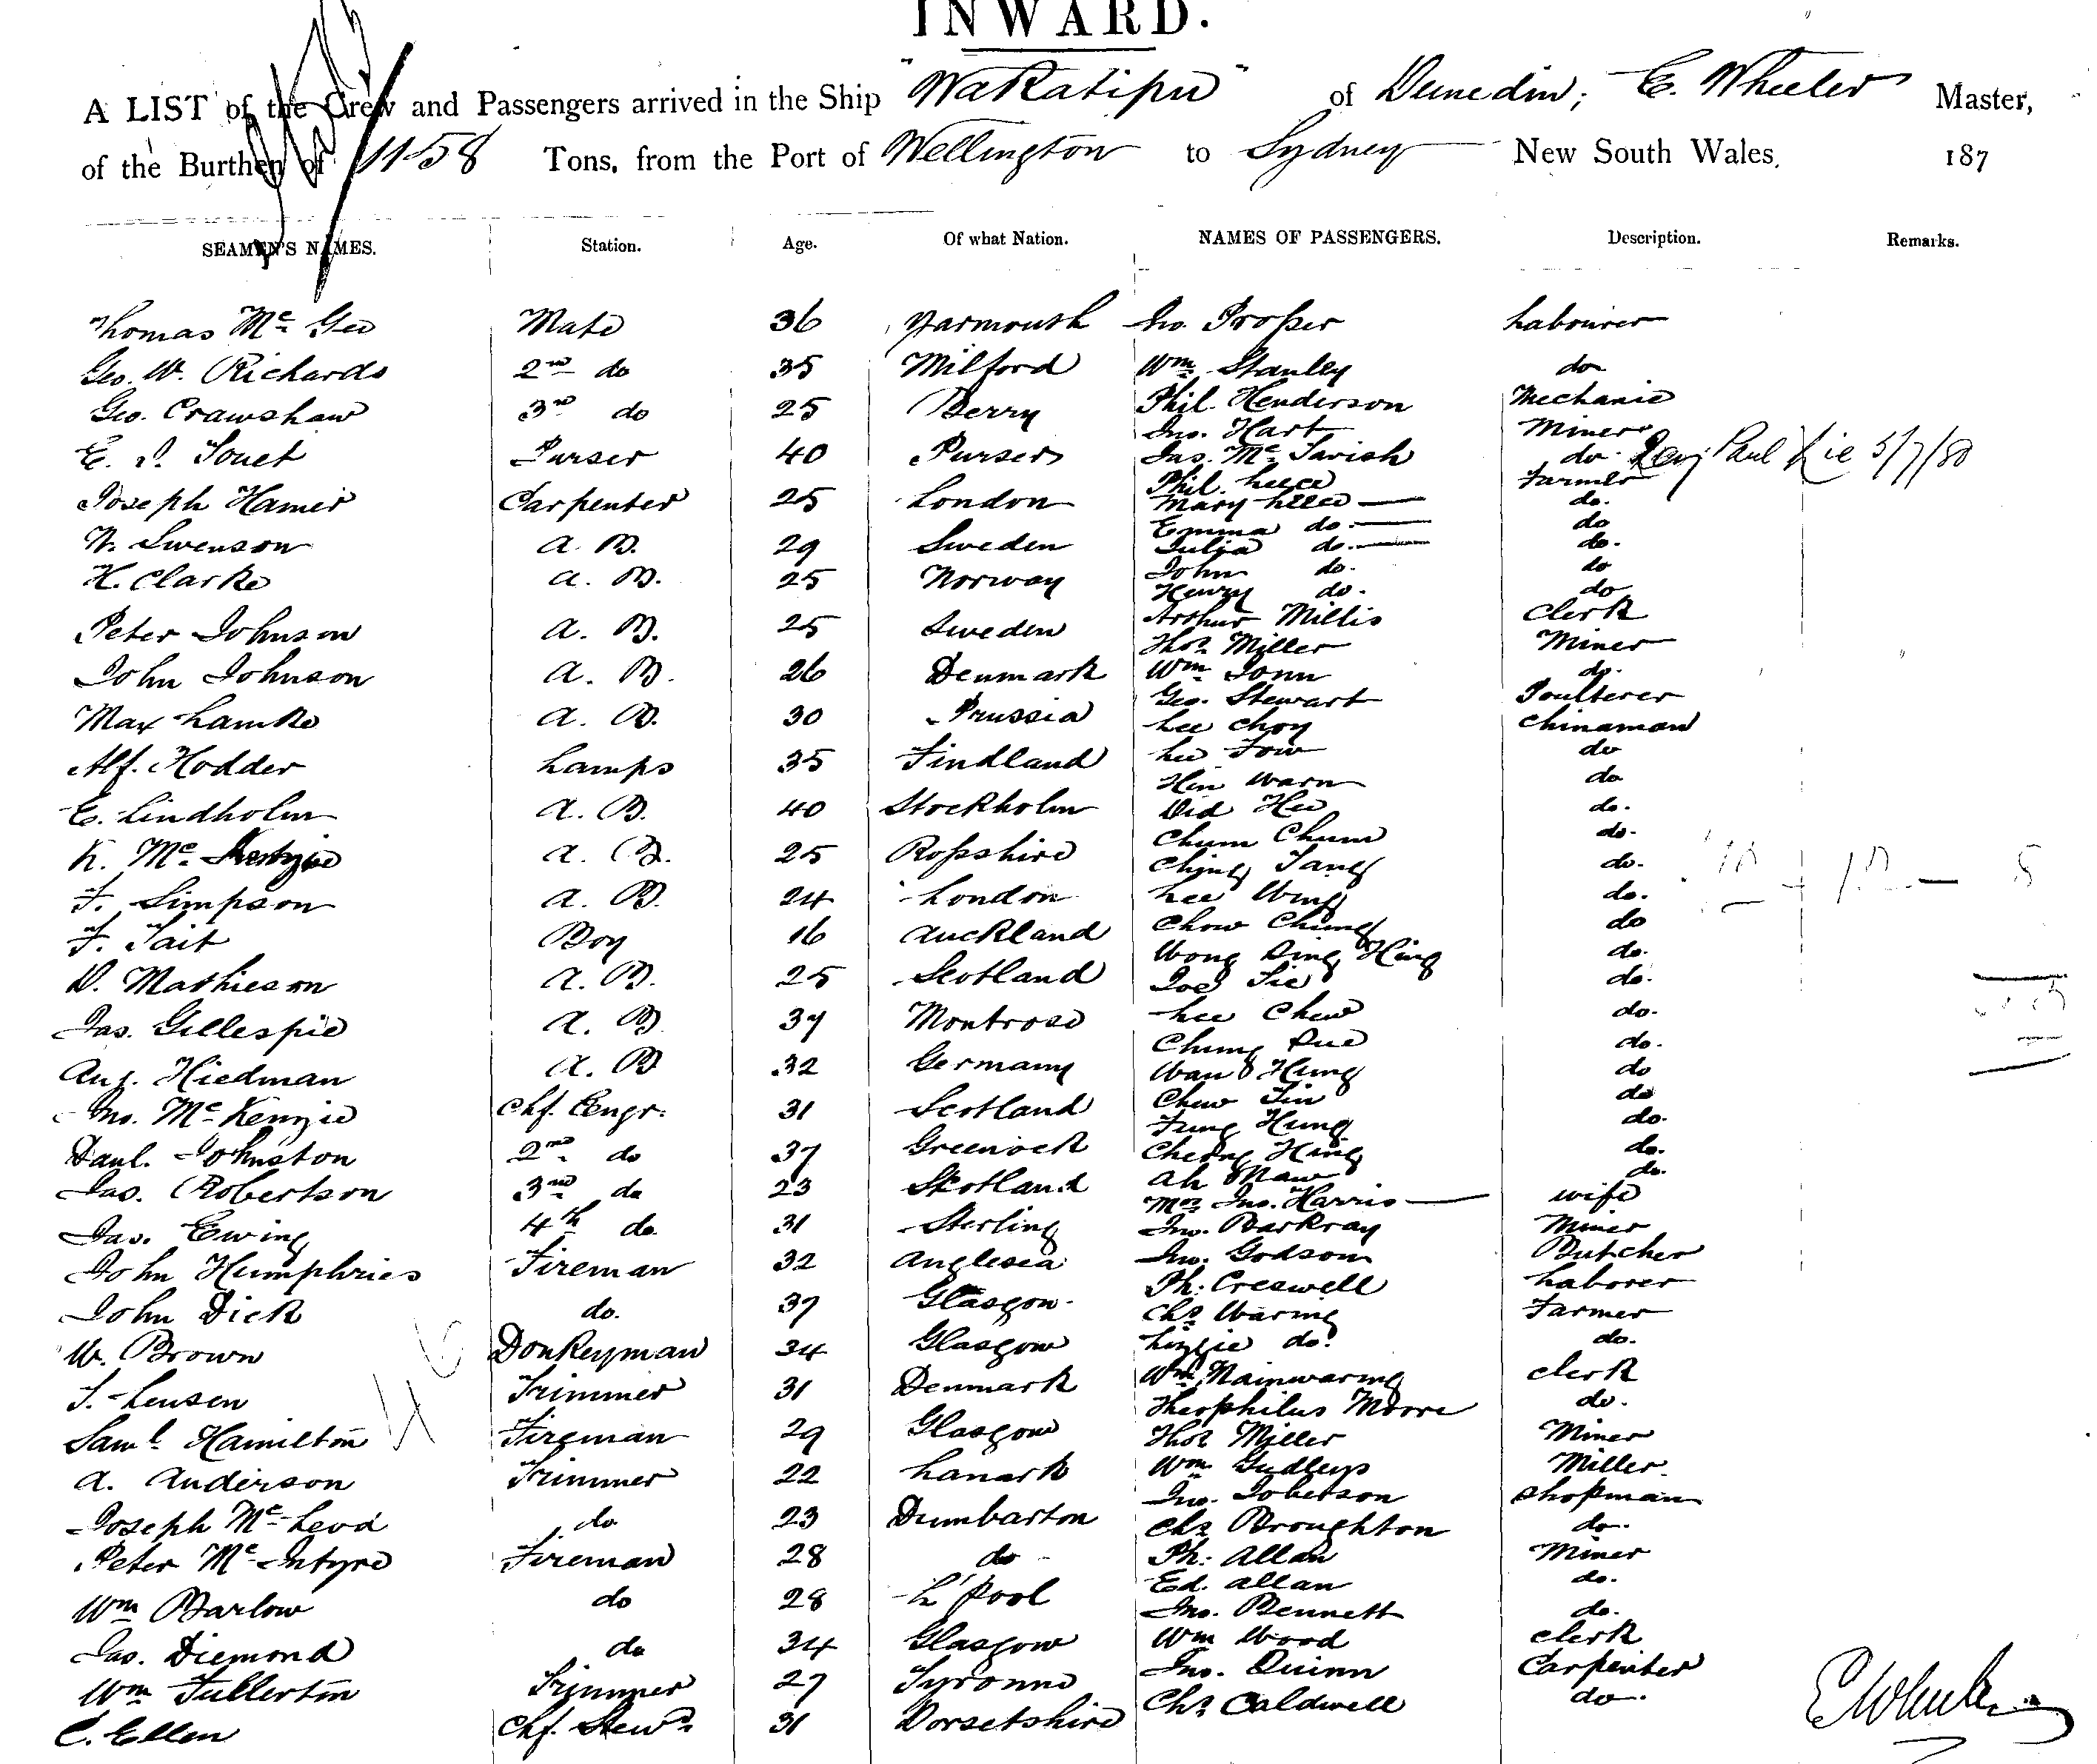 INWARD.
A LIST of the Crew and Passengers arrived in the Ship "Wakatipu" of Dunedin; E. Wheeler Master,
of the Burthen of 1158 Tons, from the Port of Wellington to Sydney New South Wales, 187
SEAMEN'S NAMES. Station. Age. Of what Nation. NAMES OF PASSENGERS. Description. Remarks.
Thomas Mc Gee Mate 36 Yarmouth Jno. Proper Labourer
Geo. W. Richards 2nd do 35 Milford Wm Stanley do
Geo. Crawshaw 3rd do 25 Berry Phil. Henderson Mechanic
Jno. Hart Miner
E. J. Touet Purser 40 Purser Jas. Mc Tavish do.
Paul Kie 5/7/80
Phil. Leece Farmer
Joseph Hamer Carpenter 25 London Mary Leece do.
Emma do. do
N. Swenson A. B. 29 Sweden Julia do. do.
H. Clarke A. B. 25 Norway John do. do
Henry do. do
Peter Johnson A. B. 25 Sweden Arthur Millis Clerk
Thos Miller Miner
John Johnson A. B. 26 Denmark Wm Tonn do.
Geo. Stewart Poulterer
Max Lamke A. B. 30 Prussia Lee Choy Chinaman
Alf. Hodder Lamps 35 Findland Lee Fow do
Hin Warn do
E. Lindholm A. B. 40 Stockholm Did Hee do.
Chum Chum do.
K. Mc Kenzie A. B. 25 Rossshire Ching Tang do.
F. Simpson A. B. 24 London Lee Wing do.
F. Tait Boy 16 Auckland Chow Chung do
Wong Sing Hing do.
D. Mathieson A. B. 25 Scotland Joe Sie do.
Jas. Gillespie A. B. 37 Montrose Lee Chew do.
Chung Sue do.
Aug. Hiedman A. B. 32 Germany Wan Hung do
Chew Tin do
Jno. McKenzie Chf. Engr. 31 Scotland Fung Hung do.
Danl. Johnston 2nd do 37 Greenock Cheong Hing do.
Ah Maw do.
Jas. Robertson 3rd do 23 Scotland Mrs Jno. Harris wife
Jas. Ewing 4th do. 31 Sterling Jno. Barkray Miner
John Humphries Fireman 32 Anglesea Jno. Godson Butcher
Ph: Creswell Laborer
John Dick do. 37 Glasgow. Chs Waring Farmer
W. Brown Donkeyman 34 Glasgow Lizzie do. do.
J. Leusen Trimmer 31 Denmark Wm Mainwaring Clerk
46
Theophilus Moore do.
Saml. Hamilton Fireman 29 Glasgow Thos Miller Miner
A. Anderson Trimmer 22 Lanark Wm Gudleys Miller.
Jno. Joberson Shopman
Joseph Mc Leod do 23 Dumbarton Chs Broughton do.
Peter Mc Intyre Fireman 28 do Ph: Allan Miner
Ed. Allan do.
Wm Barlow do 28 L'Pool Jno. Bennett do.
Jas. Diemond do 34 Glasgow Wm Wood Clerk
Wm Fullerton Trimmer 27 Tyronne Jno. Quinn Carpenter
C. Ellen Chf. Stewd. 31 Dorsetshire Chs Caldwell do.
E Wheeler